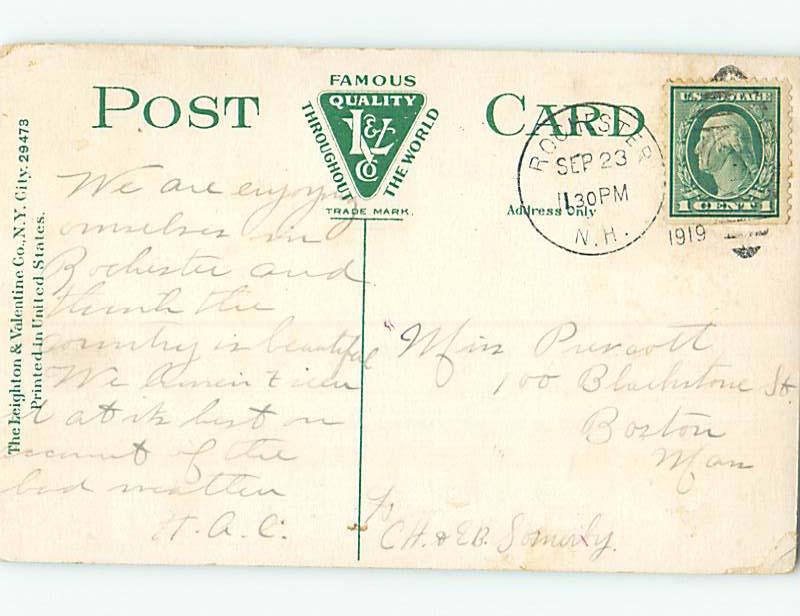 The Leighton & Valentine Co., N.Y. City. 29473
Printed in United States.
POST CARD
FAMOUS
QUALITY
THROUGHOUT THE WORLD
L&V
CO
TRADE MARK.
Address Only
ROCHESTER
SEP 23
11 30 PM
N.H.
1919
U.S. POSTAGE
1 CENT 1
We are enjoying
ourselves in
Rochester and
think the
country is beautiful
We
it at its best on
account of the
bad weather
H. A. C.
Miss Prescott
100 Blackstone St.
Boston
Mass
C.H. & E.B. Somerby.